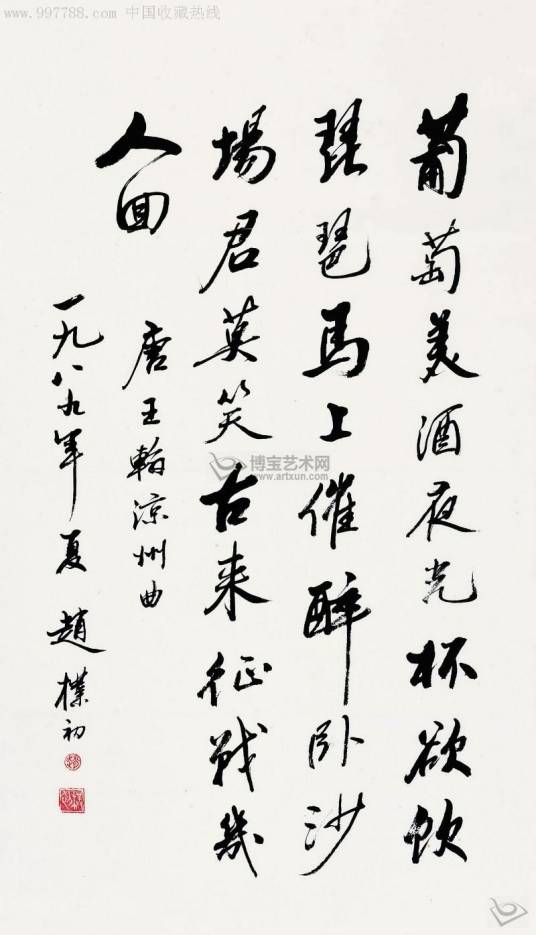 www.997788.com 中国收藏热线
葡萄美酒夜光杯欲飲
琵琶馬上催醉卧沙
場君莫笑古来征戰幾
人回
唐王翰涼州曲
一九八九年夏 趙樸初
博宝艺术网
www.artxun.com